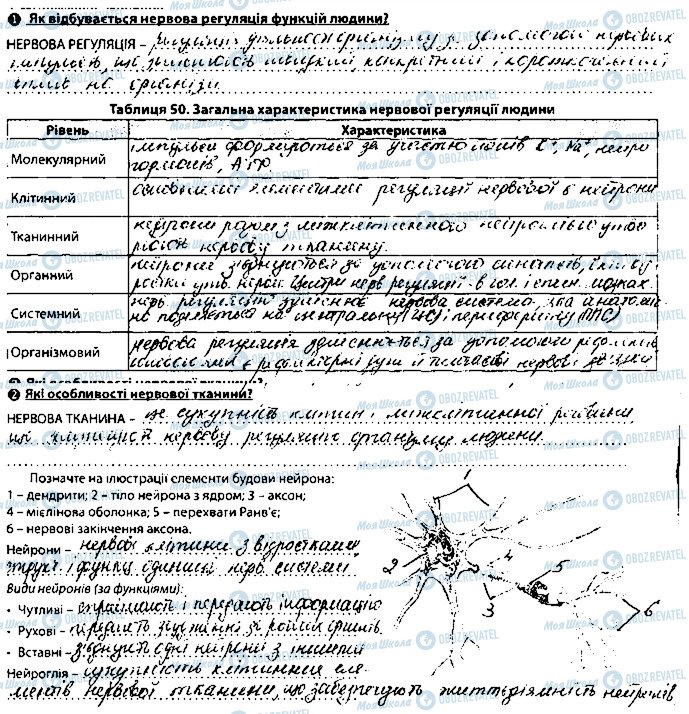 ❶ Як відбувається нервова регуляція функцій людини?
НЕРВОВА РЕГУЛЯЦІЯ – регуляція діяльності організму за допомогою нервових
імпульсів, що здійснюють швидкий, конкретний і короткочасний
вплив на органи.
Таблиця 50. Загальна характеристика нервової регуляції людини
Рівень Характеристика
Молекулярний імпульси формуються за участю іонів K⁺, Na⁺, нейро
гормонів, АТФ
Клітинний основними елементами регуляції нервової є нейрони
Тканинний нейрони разом з міжклітинною нейроглією утво
рюють нервову тканину.
Органний нейрони з'єднуються за допомогою синапсів, їхні від
ростки утв. нерви. Центри нерв. регуляції в гол. і спин. мозках.
Системний нерв. регуляцію здійснює нервова система, яка анатоміч
но поділяється на центральну (ЦНС) і периферичну (ПНС)
Організмовий нервова регуляція здійснюється за допомогою рефлексів,
❷ Які особливості нервової тканини?
НЕРВОВА ТКАНИНА – це сукупність клітин і міжклітинної речовини,
що здійснюють нервову регуляцію організму людини.
Позначте на ілюстрації елементи будови нейрона:
1 – дендрити; 2 – тіло нейрона з ядром; 3 – аксон;
4 – мієлінова оболонка; 5 – перехвати Ранв'є;
6 – нервові закінчення аксона.
Нейрони – нервові клітини з відростками,
структ. і функц. одиниці нерв. системи.
Види нейронів (за функціями):
- Чутливі – сприймають і передають інформацію
- Рухові – передають
- Вставні – з'єднують одні нейрони з іншими
Нейроглія – сукупність клітинних еле-
ментів нервової тканини, що забезпечують життєдіяльність нейронів
1
2
3
4
5
6
Моя Школа OBOZREVATEL